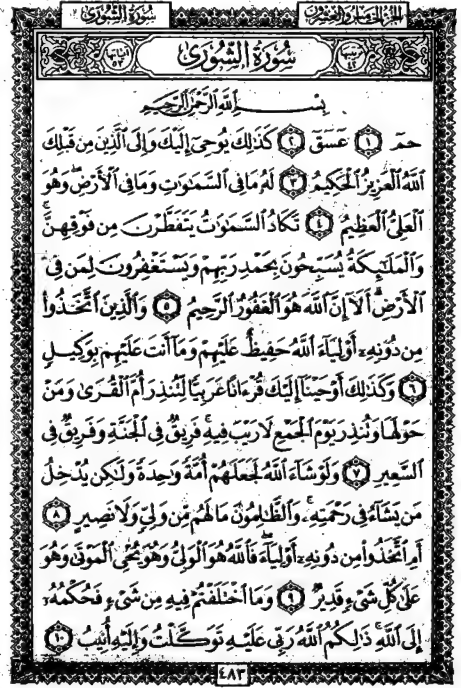 الجزء الخامس والعشرون سورة الشورى
سورة الشورى
بِسْمِ اللَّهِ الرَّحْمَٰنِ الرَّحِيمِ
حمٓ ١ عٓسٓقٓ ٢ كَذَٰلِكَ يُوحِىٓ إِلَيْكَ وَإِلَى ٱلَّذِينَ مِن قَبْلِكَ
ٱللَّهُ ٱلْعَزِيزُ ٱلْحَكِيمُ ٣ لَهُۥ مَا فِى ٱلسَّمَٰوَٰتِ وَمَا فِى ٱلْأَرْضِ ۖ وَهُوَ
ٱلْعَلِىُّ ٱلْعَظِيمُ ٤ تَكَادُ ٱلسَّمَٰوَٰتُ يَتَفَطَّرْنَ مِن فَوْقِهِنَّ ۚ
وَٱلْمَلَٰٓئِكَةُ يُسَبِّحُونَ بِحَمْدِ رَبِّهِمْ وَيَسْتَغْفِرُونَ لِمَن فِى
ٱلْأَرْضِ ۗ أَلَآ إِنَّ ٱللَّهَ هُوَ ٱلْغَفُورُ ٱلرَّحِيمُ ٥ وَٱلَّذِينَ ٱتَّخَذُوا۟
مِن دُونِهِۦٓ أَوْلِيَآءَ ٱللَّهُ حَفِيظٌ عَلَيْهِمْ وَمَآ أَنتَ عَلَيْهِم بِوَكِيلٍ
٦ وَكَذَٰلِكَ أَوْحَيْنَآ إِلَيْكَ قُرْءَانًا عَرَبِيًّا لِّتُنذِرَ أُمَّ ٱلْقُرَىٰ وَمَنْ
حَوْلَهَا وَتُنذِرَ يَوْمَ ٱلْجَمْعِ لَا رَيْبَ فِيهِ ۚ فَرِيقٌ فِى ٱلْجَنَّةِ وَفَرِيقٌ فِى
ٱلسَّعِيرِ ٧ وَلَوْ شَآءَ ٱللَّهُ لَجَعَلَهُمْ أُمَّةً وَٰحِدَةً وَلَٰكِن يُدْخِلُ
مَن يَشَآءُ فِى رَحْمَتِهِۦ ۚ وَٱلظَّٰلِمُونَ مَا لَهُم مِّن وَلِىٍّ وَلَا نَصِيرٍ ٨
أَمِ ٱتَّخَذُوا۟ مِن دُونِهِۦٓ أَوْلِيَآءَ ۖ فَٱللَّهُ هُوَ ٱلْوَلِىُّ وَهُوَ يُحْىِ ٱلْمَوْتَىٰ وَهُوَ
عَلَىٰ كُلِّ شَىْءٍ قَدِيرٌ ٩ وَمَا ٱخْتَلَفْتُمْ فِيهِ مِن شَىْءٍ فَحُكْمُهُۥٓ
إِلَى ٱللَّهِ ۚ ذَٰلِكُمُ ٱللَّهُ رَبِّى عَلَيْهِ تَوَكَّلْتُ وَإِلَيْهِ أُنِيبُ ١٠
٤٨٣